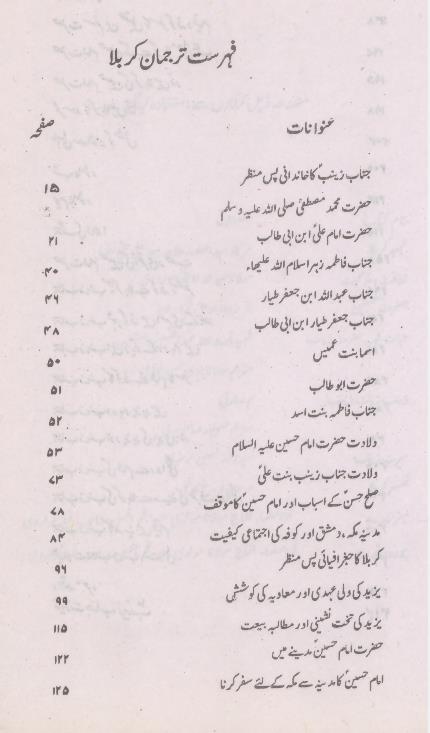 فہرست ترجمان کربلا
عنوانات صفحہ
جناب زینبؑ کا خاندانی پس منظر ۱۵
حضرت محمد مصطفیٰ صلی اللہ علیہ وسلم
حضرت امام علیؑ ابن ابی طالب ۲۱
جناب فاطمہ زہرا سلام اللہ علیھاء ۴۰
جناب عبداللہ ابن جعفر طیار ۴۶
جناب جعفر طیار ابن ابی طالب ۴۸
اسما بنت عمیس ۵۰
حضرت ابو طالب ۵۱
جناب فاطمہ بنت اسد ۵۲
ولادت حضرت امام حسین علیہ السلام ۵۳
ولادت جناب زینب بنت علیؑ ۷۳
صلح حسنؑ کے اسباب اور امام حسینؑ کا موقف ۷۸
مدینہ مکہ، دمشق اور کوفہ کی اجتماعی کیفیت ۸۴
کربلا کا جغرافیائی پس منظر ۹۶
یزید کی ولی عہدی اور معاویہ کی کوششیں ۹۹
یزید کی تخت نشینی اور مطالبہ بیعت ۱۱۵
حضرت امام حسینؑ مدینے میں ۱۲۲
امام حسینؑ کا مدینہ سے مکہ کے لئے سفر کرنا ۱۲۵